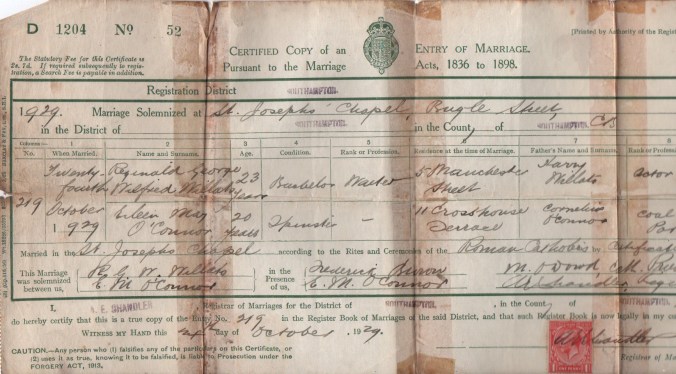 D 1204 No 52
The Statutory Fee for this Certificate is
2s. 7d. If required subsequently to regis-
tration, a Search Fee is payable in addition.
CERTIFIED COPY of an ENTRY OF MARRIAGE.
PURSUANT to the MARRIAGE ACTS, 1836 to 1898.
[Printed by Authority of the Regis
Registration District SOUTHAMPTON.
1929. Marriage Solemnized at St. Josephs' Chapel, Bugle Street,
in the District of SOUTHAMPTON. in the County of SOUTHAMPTON. C.B
Columns :— 1 2 3 4 5 6 7 8
No. When Married. Name and Surname. Age. Condition. Rank or Profession. Residence at the time of Marriage. Father's Name and Surname.
219 Twenty fourth October 1929
Reginald George Wilfred Willats 23 years Bachelor Waiter 5 Manchester Street Harry Willats actor
Eileen May O'Connor 20 years Spinster — 11 Crosshouse Terrace Cornelius O'Connor coal
Married in the St. Josephs Chapel according to the Rites and Ceremonies of the Roman Catholics by Certificate
This Marriage was solemnized between us, R. G. W. Willats E. M. O'Connor
in the Presence of us, Frederick E. M. O'Connor
M. O'Dowd A.E. Chandler
I, A. E. CHANDLER Registrar of Marriages for the District of SOUTHAMPTON, in the County of
do hereby certify that this is a true copy of the Entry No. 219 in the Register Book of Marriages of the said District, and that such Register Book is now legally in my cus
WITNESS MY HAND this 24th day of October, 1929.
A E Chandler
Registrar of Mar
CAUTION.—Any person who (1) falsifies any of the particulars on this Certificate, or
(2) uses it as true, knowing it to be falsified, is liable to Prosecution under the
FORGERY ACT, 1913.